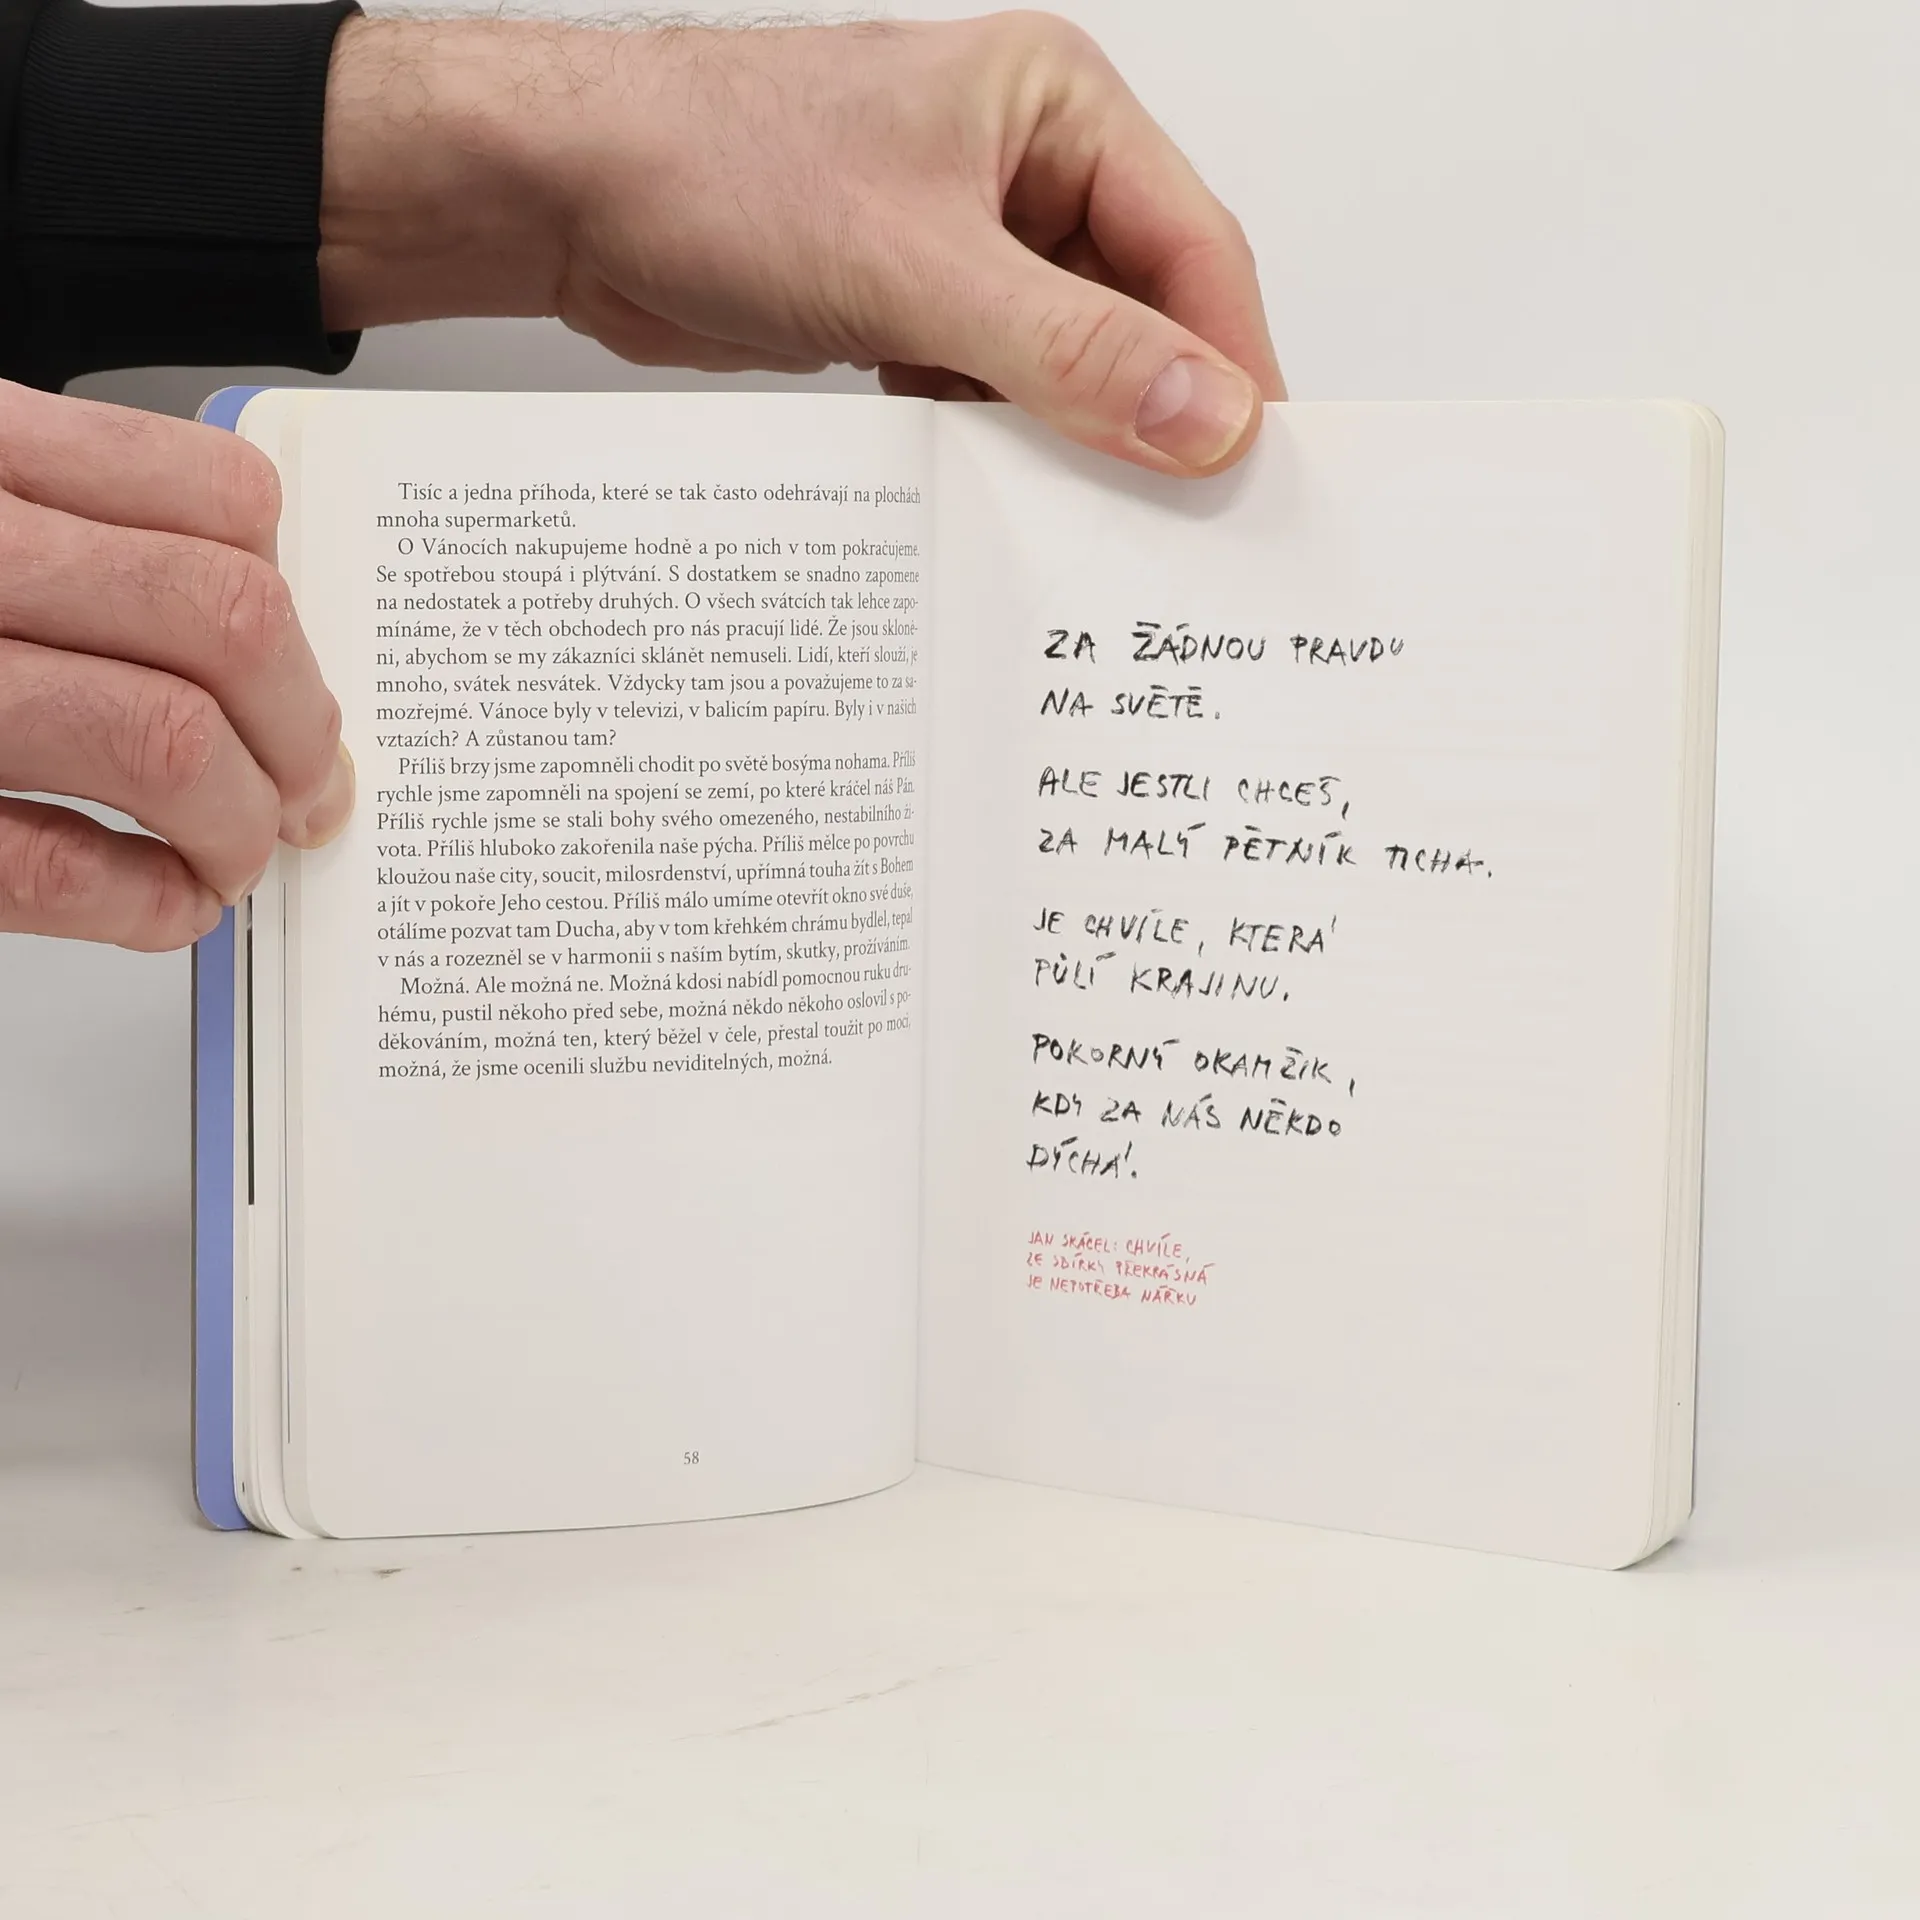 Tisíc a jedna příhoda, které se tak často odehrávají na plochách
mnoha supermarketů.
O Vánocích nakupujeme hodně a po nich v tom pokračujeme.
Se spotřebou stoupá i plýtvání. S dostatkem se snadno zapomene
na nedostatek a potřeby druhých. O všech svátcích tak lehce zapo-
mínáme, že v těch obchodech pro nás pracují lidé. Že jsou skloně-
ni, abychom se my zákazníci sklánět nemuseli. Lidí, kteří slouží, je
mnoho, svátek nesvátek. Vždycky tam jsou a považujeme to za sa-
mozřejmé. Vánoce byly v televizi, v balicím papíru. Byly i v našich
vztazích? A zůstanou tam?
Příliš brzy jsme zapomněli chodit po světě bosýma nohama. Příliš
rychle jsme zapomněli na spojení se zemí, po které kráčel náš Pán.
Příliš rychle jsme se stali bohy svého omezeného, nestabilního ži-
vota. Příliš hluboko zakořenila naše pýcha. Příliš mělce po povrchu
kloužou naše city, soucit, milosrdenství, upřímná touha žít s Bohem
a jít v pokoře Jeho cestou. Příliš málo umíme otevřít okno své duše,
otálíme pozvat tam Ducha, aby v tom křehkém chrámu bydlel, tepal
v nás a rozezněl se v harmonii s naším bytím, skutky, prožíváním.
Možná. Ale možná ne. Možná kdosi nabídl pomocnou ruku dru-
hému, pustil někoho před sebe, možná někdo někoho oslovil s po-
děkováním, možná ten, který běžel v čele, přestal toužit po moci,
možná, že jsme ocenili službu neviditelných, možná.
58
ZA ŽÁDNOU PRAVDU
NA SVĚTĚ.
ALE JESTLI CHCEŠ,
ZA MALÝ PĚTNÍK TICHA.
JE CHVÍLE, KTERÁ
PŮLÍ KRAJINU.
POKORNÝ OKAMŽIK,
KDY ZA NÁS NĚKDO
DÝCHÁ.
JAN SKÁCEL: CHVÍLE,
ZE SBÍRKY PŘEKRÁSNÁ
JE NEPOTŘEBA NÁŘKU